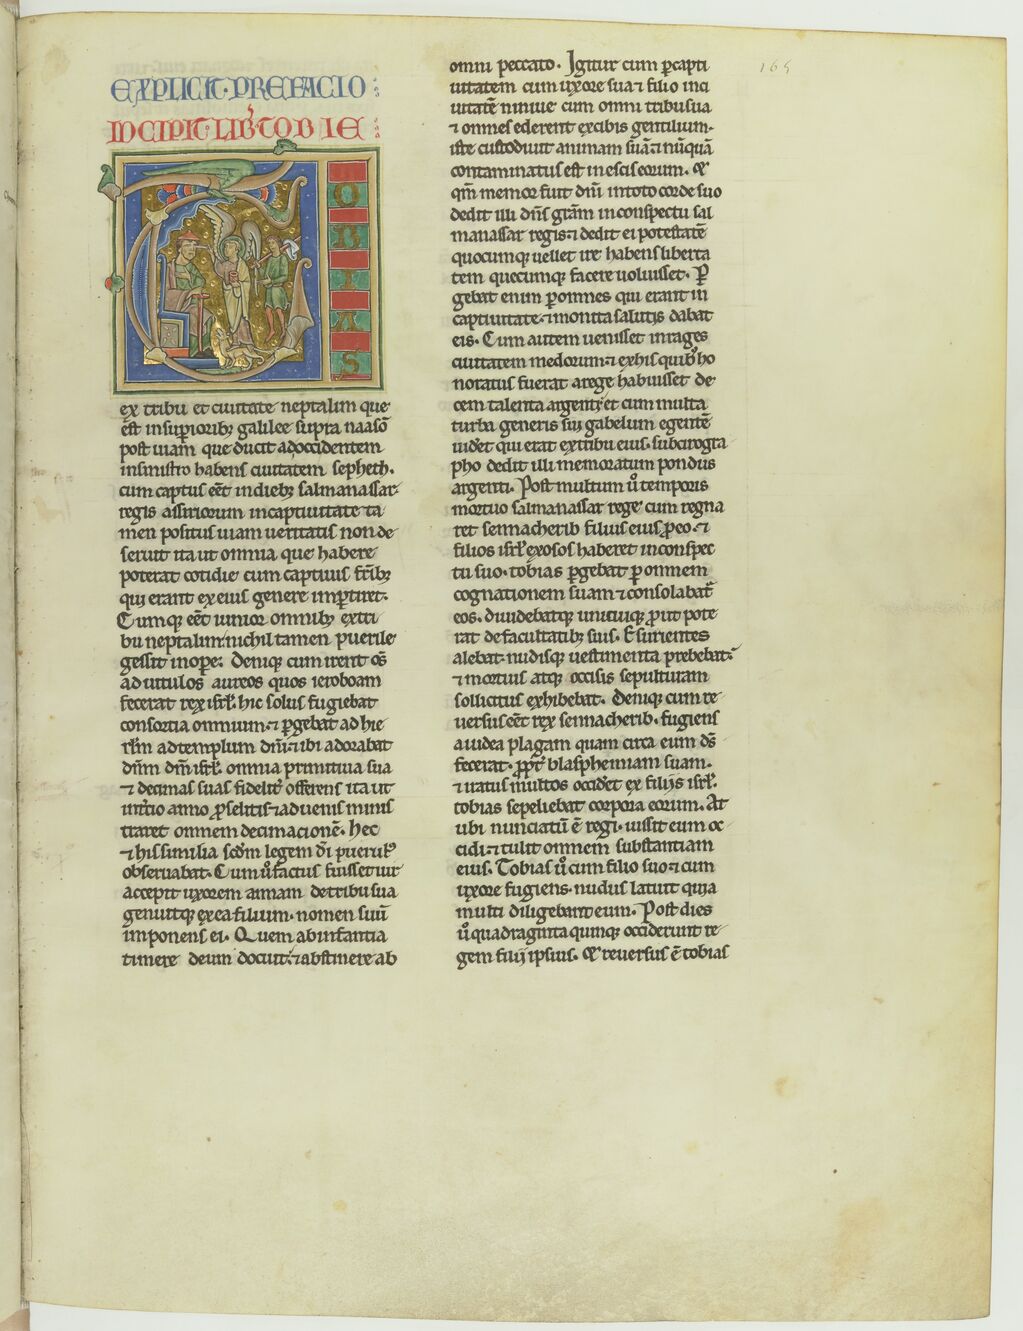 EXPLICIT·PREFACIO
INCIPIT·LIB̃ TOBIE
TOBIAS
ex tribu et ciuitate neptalim que
est in supioribꝫ galilee supra naasõ
post uiam que ducit adoccidentem
insinistro habens ciuitatem sepheth.
cum captus eẽt indiebꝫ salmanassar
regis assiriorum incaptiuitate ta
men positus uiam ueritatis non de
seruit ita ut omnia que habere
poterat cotidie cum captiuis fr̃ibꝫ
qui erant ex eius genere imꝑtiret.
Cumqꝫ eẽt iunior omnibꝫ extri
bu neptalim. nichil tamen puerile
gessit inope. Deniqꝫ cum irent oẽs
ad uitulos aureos quos ieroboam
fecerat rex isrl̃. hic solus fugiebat
consortia omnium. ⁊ ꝑgebat ad hie
rl̃m adtemplum dñi. ⁊ ibi adorabat
dñm dm̃ isrl̃. omnia primitiua sua
⁊ decimas suas fidelit̃ offerens ita ut
intr̃io anno ꝓselitis ⁊ aduenis minis
traret omnem decimacionẽ. Hec
⁊ his similia scd̃m legem dĩ pueruł
obseruabat. Cum ũ factus fuisset uir
accepit uxorem annam detribu sua
genuitqꝫ ex ea filium. nomen suũ
imponens ei. Quem abinfantia
timere deum docuit. ⁊ abstinere ab
omni peccato. Igitur cum ꝑcapti
uitatem cum uxore sua ⁊ filio inci
uitatẽ niniue cum omni tribu sua
⁊ omnes ederent excibis gentilium.
iste custodiuit animam suã. ⁊ nũquã
contaminatus est inescis eorum. Et
qm̃ memor fuit dñi intoto corde suo
dedit illi dñs gr̃am inconspectu sal
manassar regis. ⁊ dedit ei potestatẽ
quocumqꝫ uellet ire habens liberta
tem quecumqꝫ facere uoluisset. ꝑ
gebat enim ꝑomnes qui erant in
captiuitate. ⁊ monita salutis dabat
eis. Cum autem uenisset inrages
ciuitatem medorum. ⁊ exhis quibꝫ ho
noratus fuerat arege habuisset de
cem talenta argenti. et cum multa
turba generis sui gabelum egentẽ
uidet qui erat extribu eius. subcirogra
pho dedit illi memoratum pondus
argenti. Post multum ũ temporis
mortuo salmanassar rege cum regna
ret sennacherib filius eius ꝓeo. ⁊
filios isrl̃ exosos haberet inconspec
tu suo. tobias ꝑgebat ꝑ omnem
cognationem suam ⁊ consolabat̃
eos. diuidebatqꝫ unicuiqꝫ ꝓut pote
rat defacultatibꝫ suis. Esurientes
alebat. nudisqꝫ uestimenta prebebat.
⁊ mortuis atqꝫ occisis sepulturam
sollicitus exhibebat. Deniqꝫ cum re
uersus eẽt rex sennacherib. fugiens
a iudea plagam quam circa eum dẽs
fecerat. ꝓpt̃ blasphemiam suam.
⁊ iratus multos occid̃et ex filiis isrl̃.
tobias sepeliebat corpora eorum. At
ubi nunciatũ ẽ regi. iussit eum oc
cidi. ⁊ tulit omnem substantiam
eius. Tobias ũ cum filio suo ⁊ cum
uxore fugiens. nudus latuit quia
multi diligebant eum. Post dies
ũ quadraginta quinqꝫ occiderunt re
gem filii ipsius. Et reuersus ẽ tobias
165